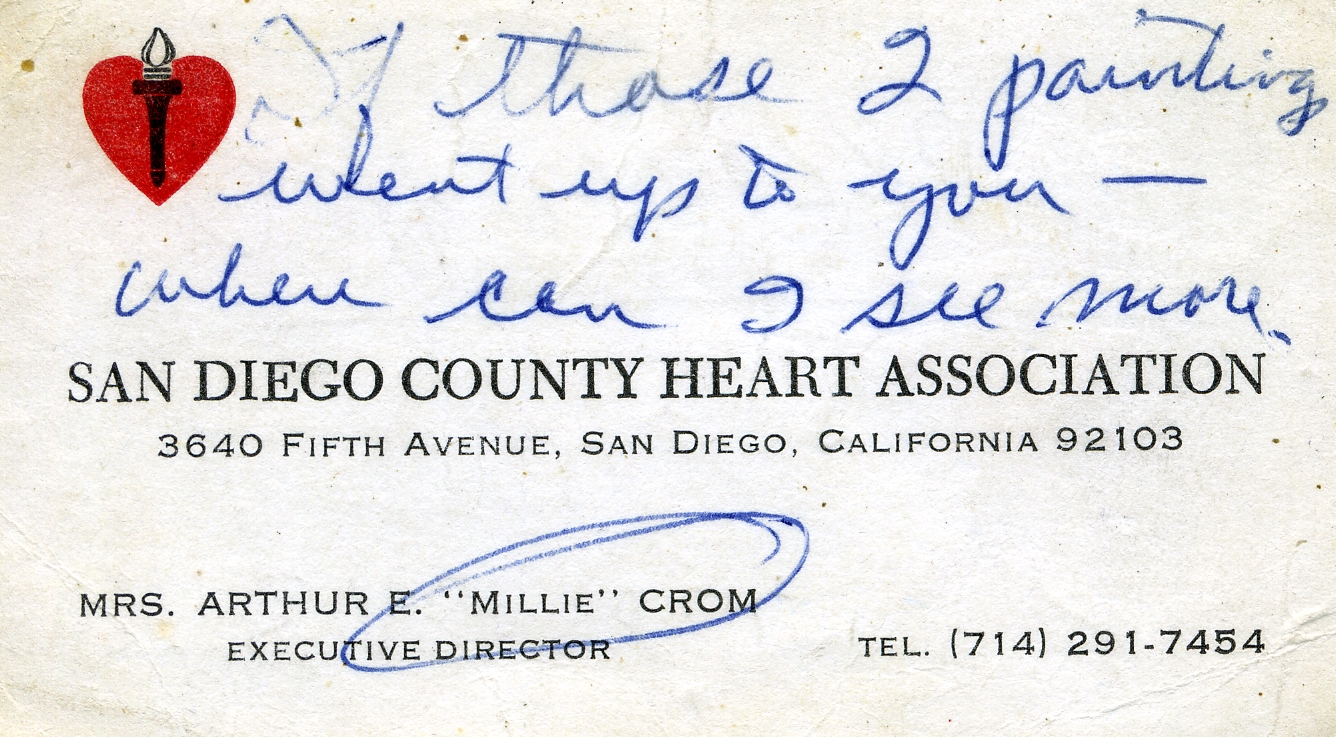 If those 2 painting
went up to you —
when can I see more.
SAN DIEGO COUNTY HEART ASSOCIATION
3640 FIFTH AVENUE, SAN DIEGO, CALIFORNIA 92103
MRS. ARTHUR E. "MILLIE" CROM
EXECUTIVE DIRECTOR
TEL. (714) 291-7454